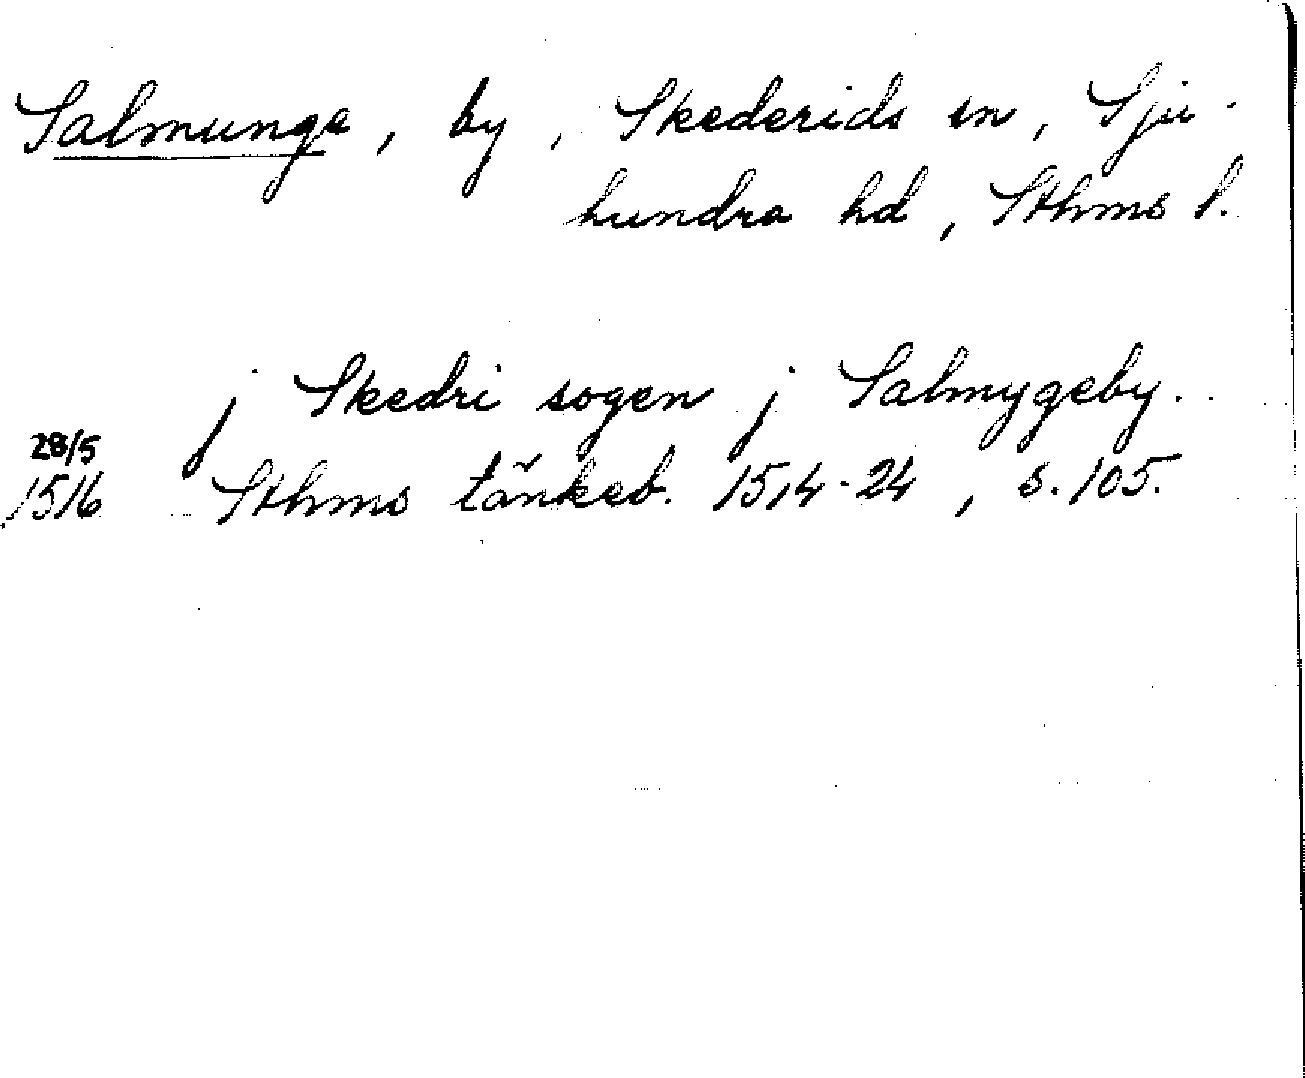 Salmunge, by, Skederids sn, Sju-
hundra hd, Sthms l.
j Skedri sogen j Salmygeby.
28/5
1516 Sthms tänkeb. 1514-24, s. 105.